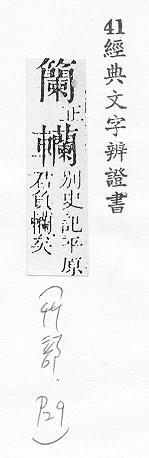 41 經典文字辨證書
籣正韊別史記平原
君負韊矢
(竹部. P29)